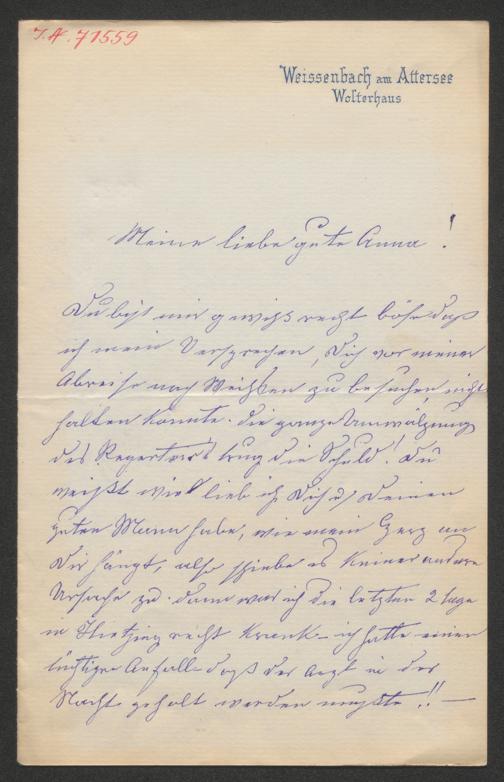 I.N. 71559
Weissenbach am Attersee
Wolterhaus
Meine liebe gute Anna!
Du bist mir gewiß recht böse daß
ich mein Versprechen, Dich vor meiner
Abreise nach Weißen zu besuchen, nicht
halten konnte. Die ganze Umwälzung
des Repertoirs trug die Schuld! Du
weißt wie lieb ich Dich u Deinen
guten Mann habe, wie mein Herz an
Dir hängt, also schiebe es keiner andern
Ursache zu. Dann war ich die letzten 2 Tage
in Hietzing recht krank – ich hatte einen
Anfall daß der Arzt in der
Nacht geholt werden mußte!! —